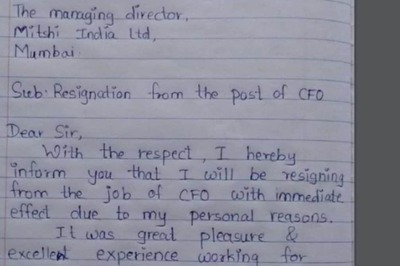 The managing director,
Mitshi India Ltd,
Mumbai.
Sub: Resignation from the post of CFO
Dear Sir,
With the respect, I hereby
inform you that I will be resigning
from the job of CFO with immediate
effect due to my personal reasons.
It was great pleasure &
excellent experience working for